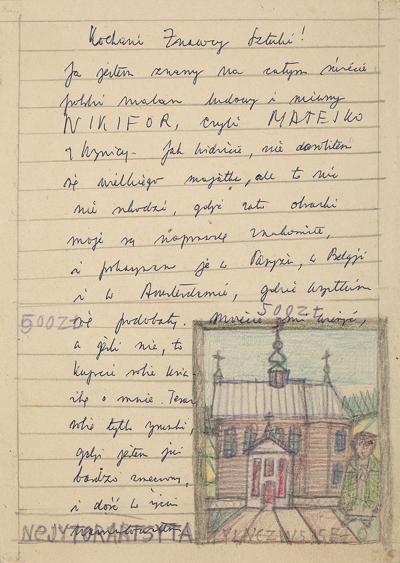 Kochani Znawcy Sztuki!
Ja jestem znany na całym świecie
polski malarz ludowy i niemy
NIKIFOR, czyli MATEJKO
z Krynicy. Jak widzicie, nie dorobiłem
się wielkiego majątku, ale to nic
nie szkodzi, gdyż za to obrazki
moje są naprawdę znakomite,
i pokazywano je w Paryżu, w Belgji
i w Amsterdamie, gdzie wszystkim
500ZŁ się podobały. 500ZŁ Możecie mi wierzyć,
a jeśli nie, to
kupcie sobie
o mnie. Teraz
robię tylko rysunki,
gdyż jestem już
bardzo zmęczony,
i dość w życiu